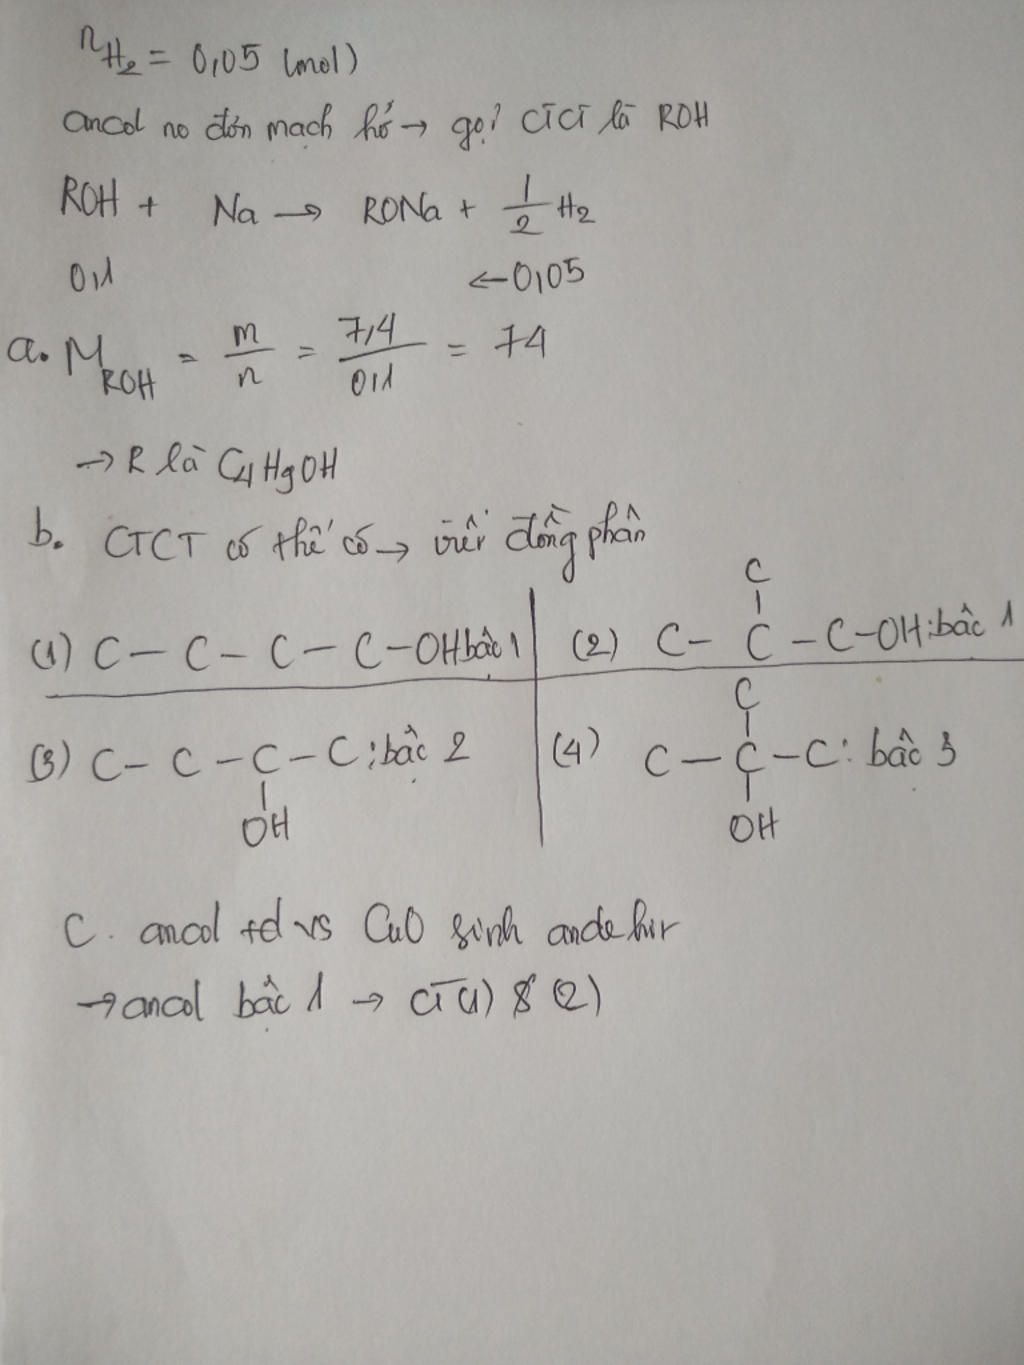 nH2 = 0,05 (mol)
ancol no đơn mạch hở → gọi CTCT là ROH
ROH + Na → RONa + 1/2 H2
0,1 ←0,05
a. MROH = m/n = 7,4/0,1 = 74
→ R là C4H9OH
b. CTCT có thể có → viết đồng phân
C
(1) C - C - C - C - OH bậc 1 (2) C - C - C - OH: bậc 1
C
(3) C - C - C - C: bậc 2 (4) C - C - C: bậc 3
OH OH
C. ancol td vs CuO sinh andehit
→ ancol bậc 1 → CT (1) & (2)